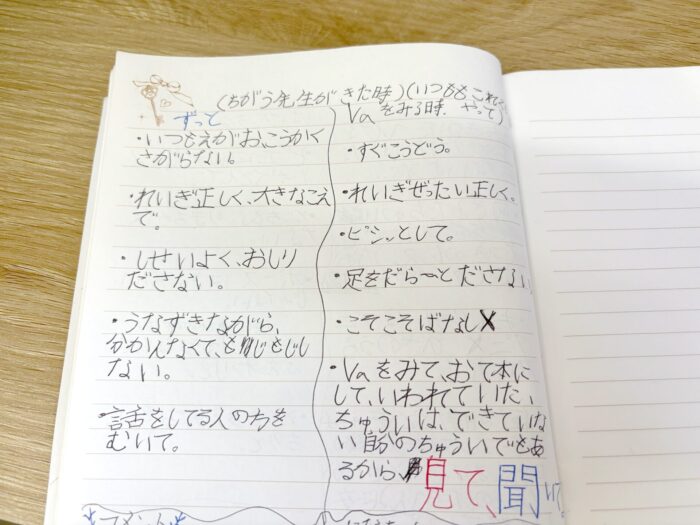 (ちがう先生がきた時)
ずっと
・いつもえがお、こうかく
さがらない。
・れいぎ正しく、大きなこえ
で。
・しせいよく、おしり
ださない。
・うなずきながら、
分かんなくて、もじもじし
ない。
・話をしてる人の方を
むいて。
(いつも
Vaをみる時、やって)
・すぐこうどう。
・れいぎぜったい正しく。
・ピシッとして。
・足をだら〜とださない
・こそこそばなし✗
・Vaをみて、おて本に
して、いわれていた、
ちゅういは、できていな
い自分のちゅういでもあ
るから、見て、聞いて。
*コメント*